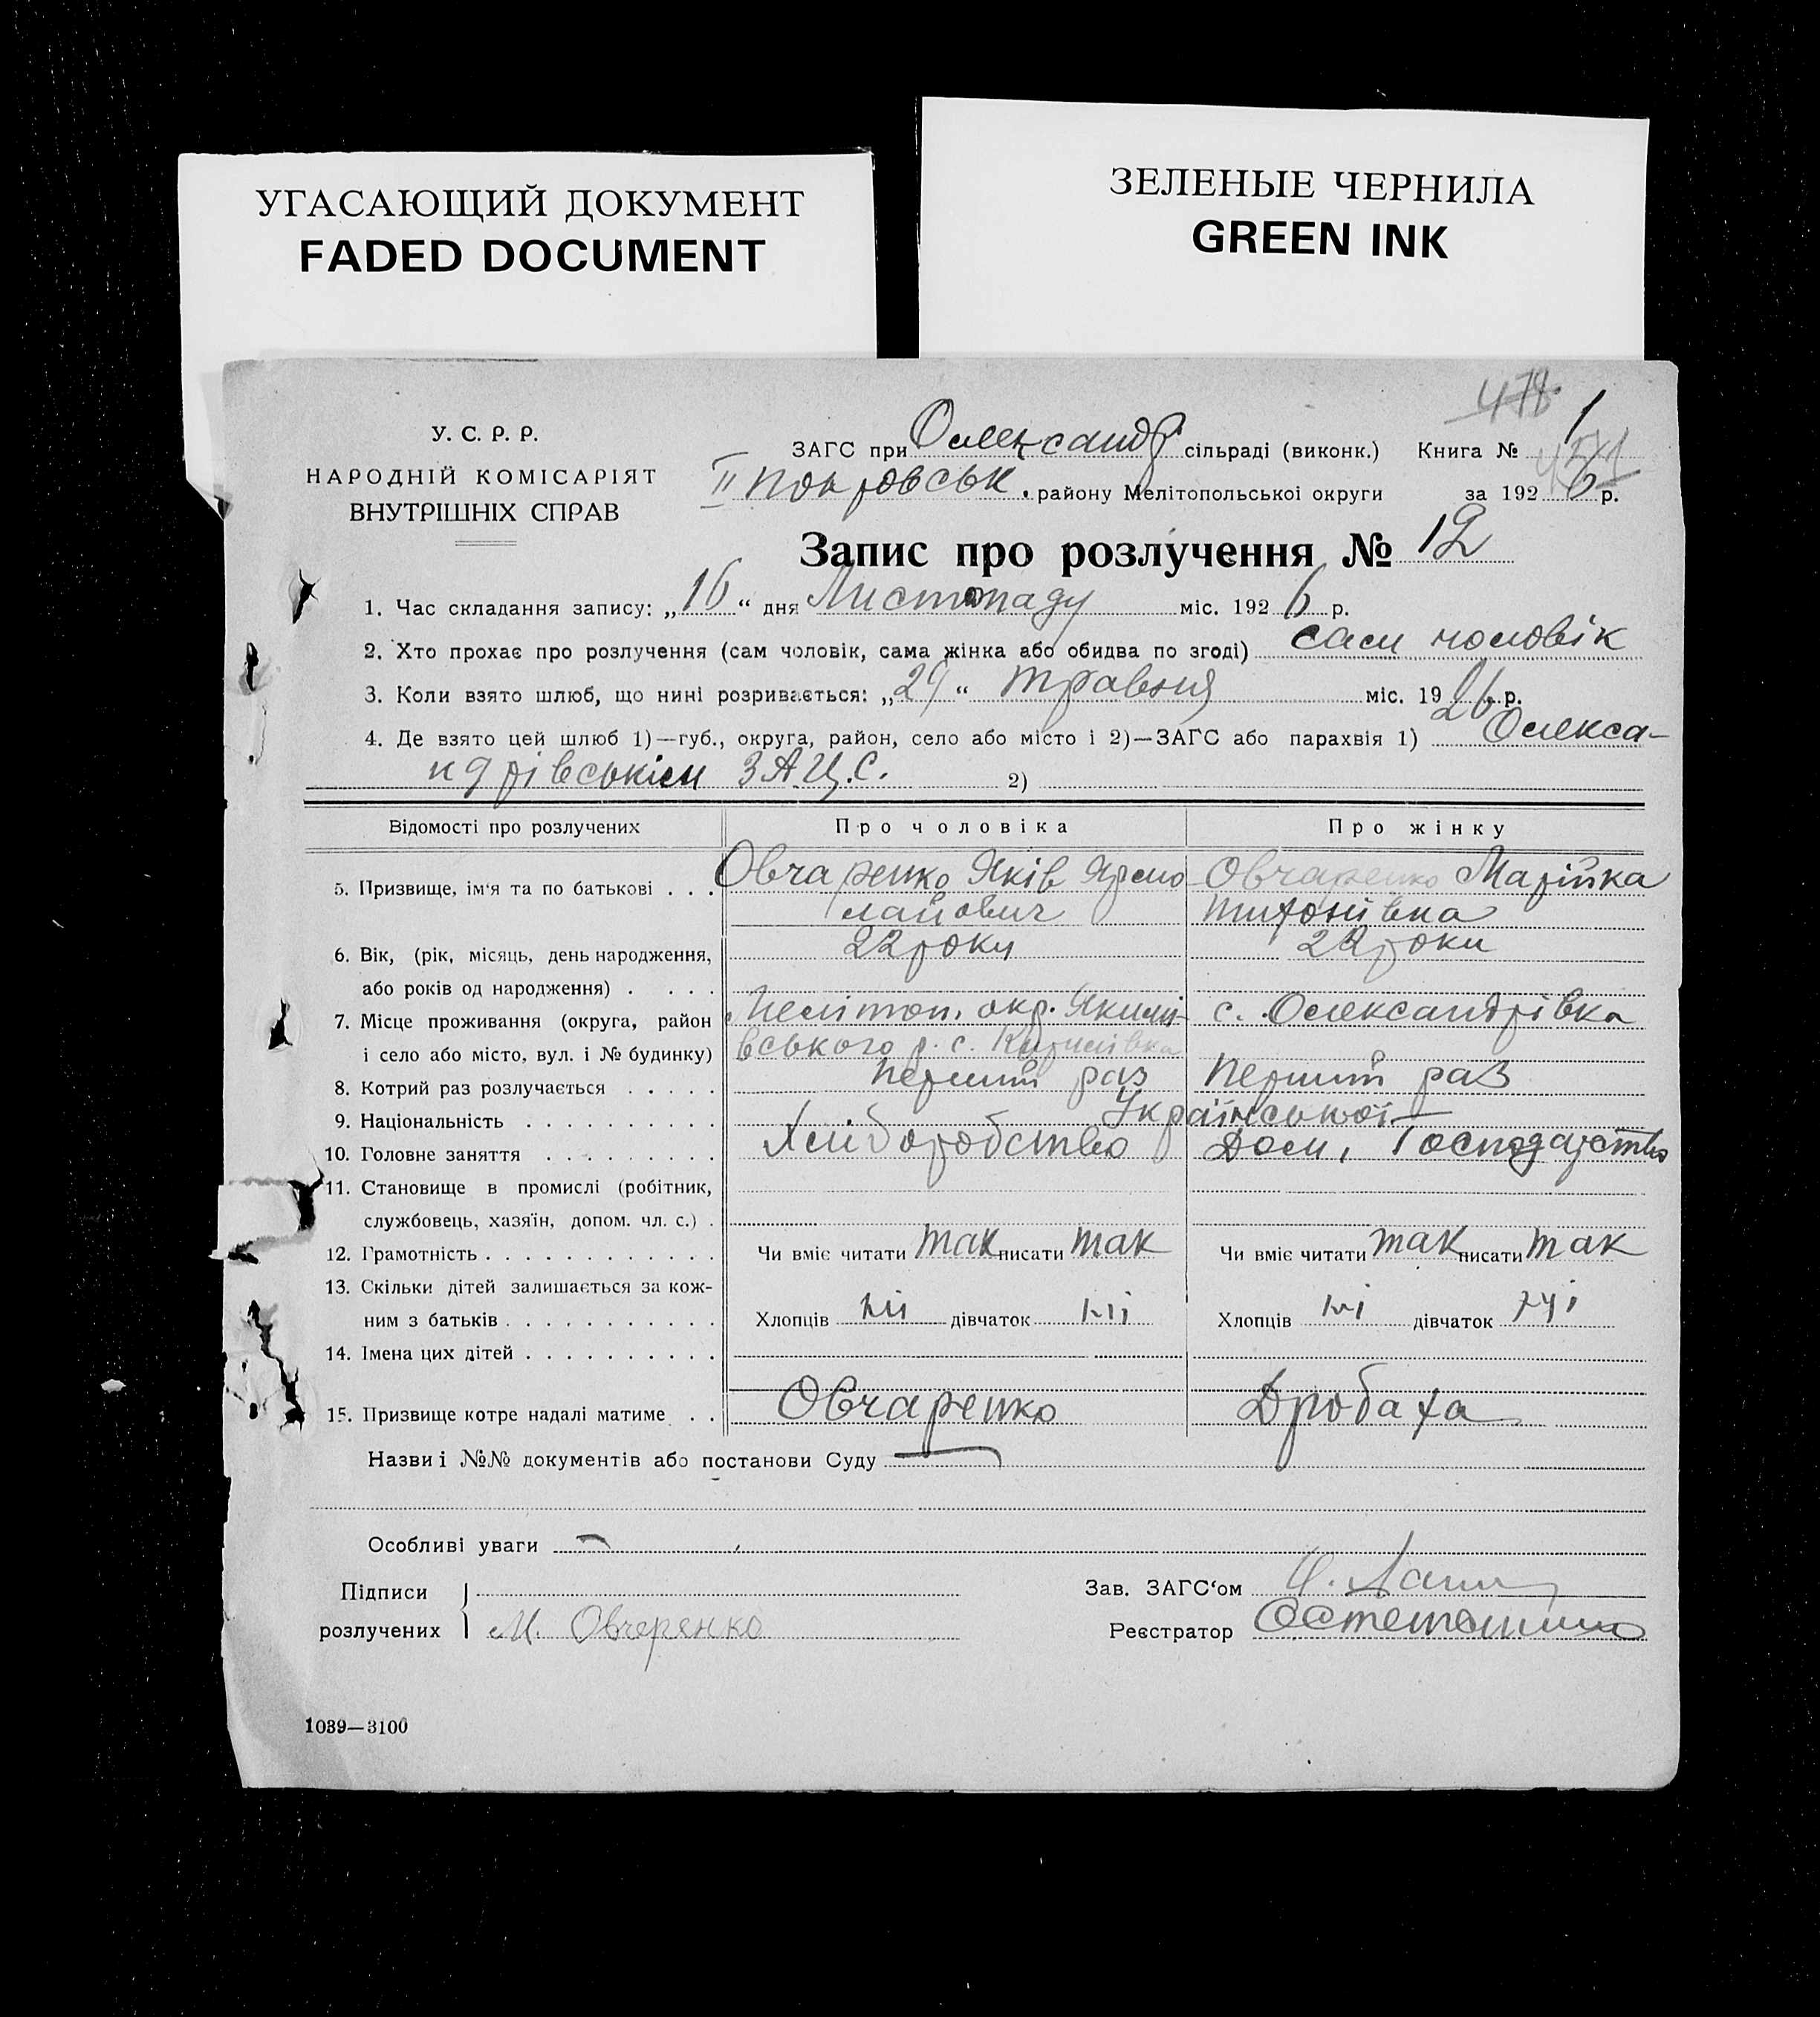 УГАСАЮЩИЙ ДОКУМЕНТ
FADED DOCUMENT
ЗЕЛЕНЫЕ ЧЕРНИЛА
GREEN INK
478
У. С. Р. Р.
НАРОДНІЙ КОМІСАРІЯТ
ВНУТРІШНІХ СПРАВ
ЗАГС при Олександр. сільраді (виконк.) Книга № 1
II Покровськ. району Мелітопольської округи за 1926 р.
Запис про розлучення № 12
1. Час складання запису: „16“ дня Листопаду міс. 1926 р.
2. Хто прохає про розлучення (сам чоловік, сама жінка або обидва по згоді) сам чоловік
3. Коли взято шлюб, що нині розривається: „29“ травня міс. 1926 р.
4. Де взято цей шлюб 1)—губ., округа, район, село або місто і 2)—ЗАГС або парахвія 1) Олекса-
ндрівськім ЗАЦ.С. 2)
Відомості про розлучених Про чоловіка Про жінку
5. Призвище, ім'я та по батькові . . . Овчаренко Яків Ярмо Овчаренко Марійка
лайович Тихонівна
6. Вік, (рік, місяць, день народження, 22 роки 22 роки
або років од народження) . . . .
7. Місце проживання (округа, район Мелітоп. окр. Якимі- с. Олександрівка
і село або місто, вул. і № будинку) вського р. с. Кирилівка
8. Котрий раз розлучається . . . . . Перший раз Перший раз
9. Національність . . . . . . . . . . Української
10. Головне заняття . . . . . . . . . Хліборобство Дом. Господарство
11. Становище в промислі (робітник,
службовець, хазяїн, допом. чл. с.) .
12. Грамотність . . . . . . . . . . . . Чи вміє читати так писати так Чи вміє читати так писати так
13. Скільки дітей залишається за кож-
ним з батьків . . . . . . . . . . . Хлопців ні дівчаток ні Хлопців ні дівчаток ні
14. Імена цих дітей . . . . . . . . . .
15. Призвище котре надалі матиме . . Овчаренко Дробаха
Назви і №№ документів або постанови Суду
Особливі уваги
Підписи Зав. ЗАГС'ом
розлучених М. Овчеренко Реєстратор
1039—3100